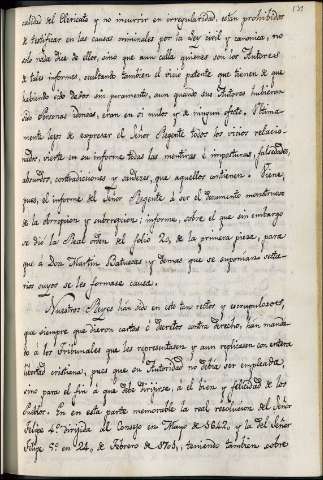 calidad del Clericato y no incurrir en irregularidad, están prohibidos
de testificar en las causas criminales por la Ley civil y canonica, no
solo nada dice de ellos, sino que aun calla quienes son los Autores
de tales informes, ocultando tambien el vicio patente que tienen de que
habiendo sido dados sin juramento, aun quando sus Autores hubieran
sido Personas idoneas, eran en si nulos y de ningun efecto. Ultima-
mente lejos de expresar el Señor Regente todos los vicios relacio-
nados, vierte en su informe todas las mentiras é imposturas, falsedades,
absurdos, contradicciones y sandeces, que aquellos contienen. Viene,
pues, el informe del Señor Regente á ser el documento monstruoso
de la obrepcion y subrepcion; informe, sobre el que sin embargo
se dió la Real orden del folio 20, de la primera pieza, para
que á Don Martin Batuecas y demas que se suponian secta-
rios suyos se les formase causa.
Nuestros Reyes han sido en esto tan rectos y escrupulosos,
que siempre que dieron cartas ó decretos contra derecho, han manda-
do á los Tribunales que les representasen y aun replicasen con entera
libertad cristiana; pues que su Autoridad no debía ser empleada,
sino para el fin á que debe dirijirse, á el bien y felicidad de los
Pueblos. Es en esta parte memorable la real resolucion del Señor
Felipe 4º dirijida al Consejo en Mayo de 1642, y la del Señor
Felipe 5º en 24, de Febrero de 1705, teniendo tambien sobre